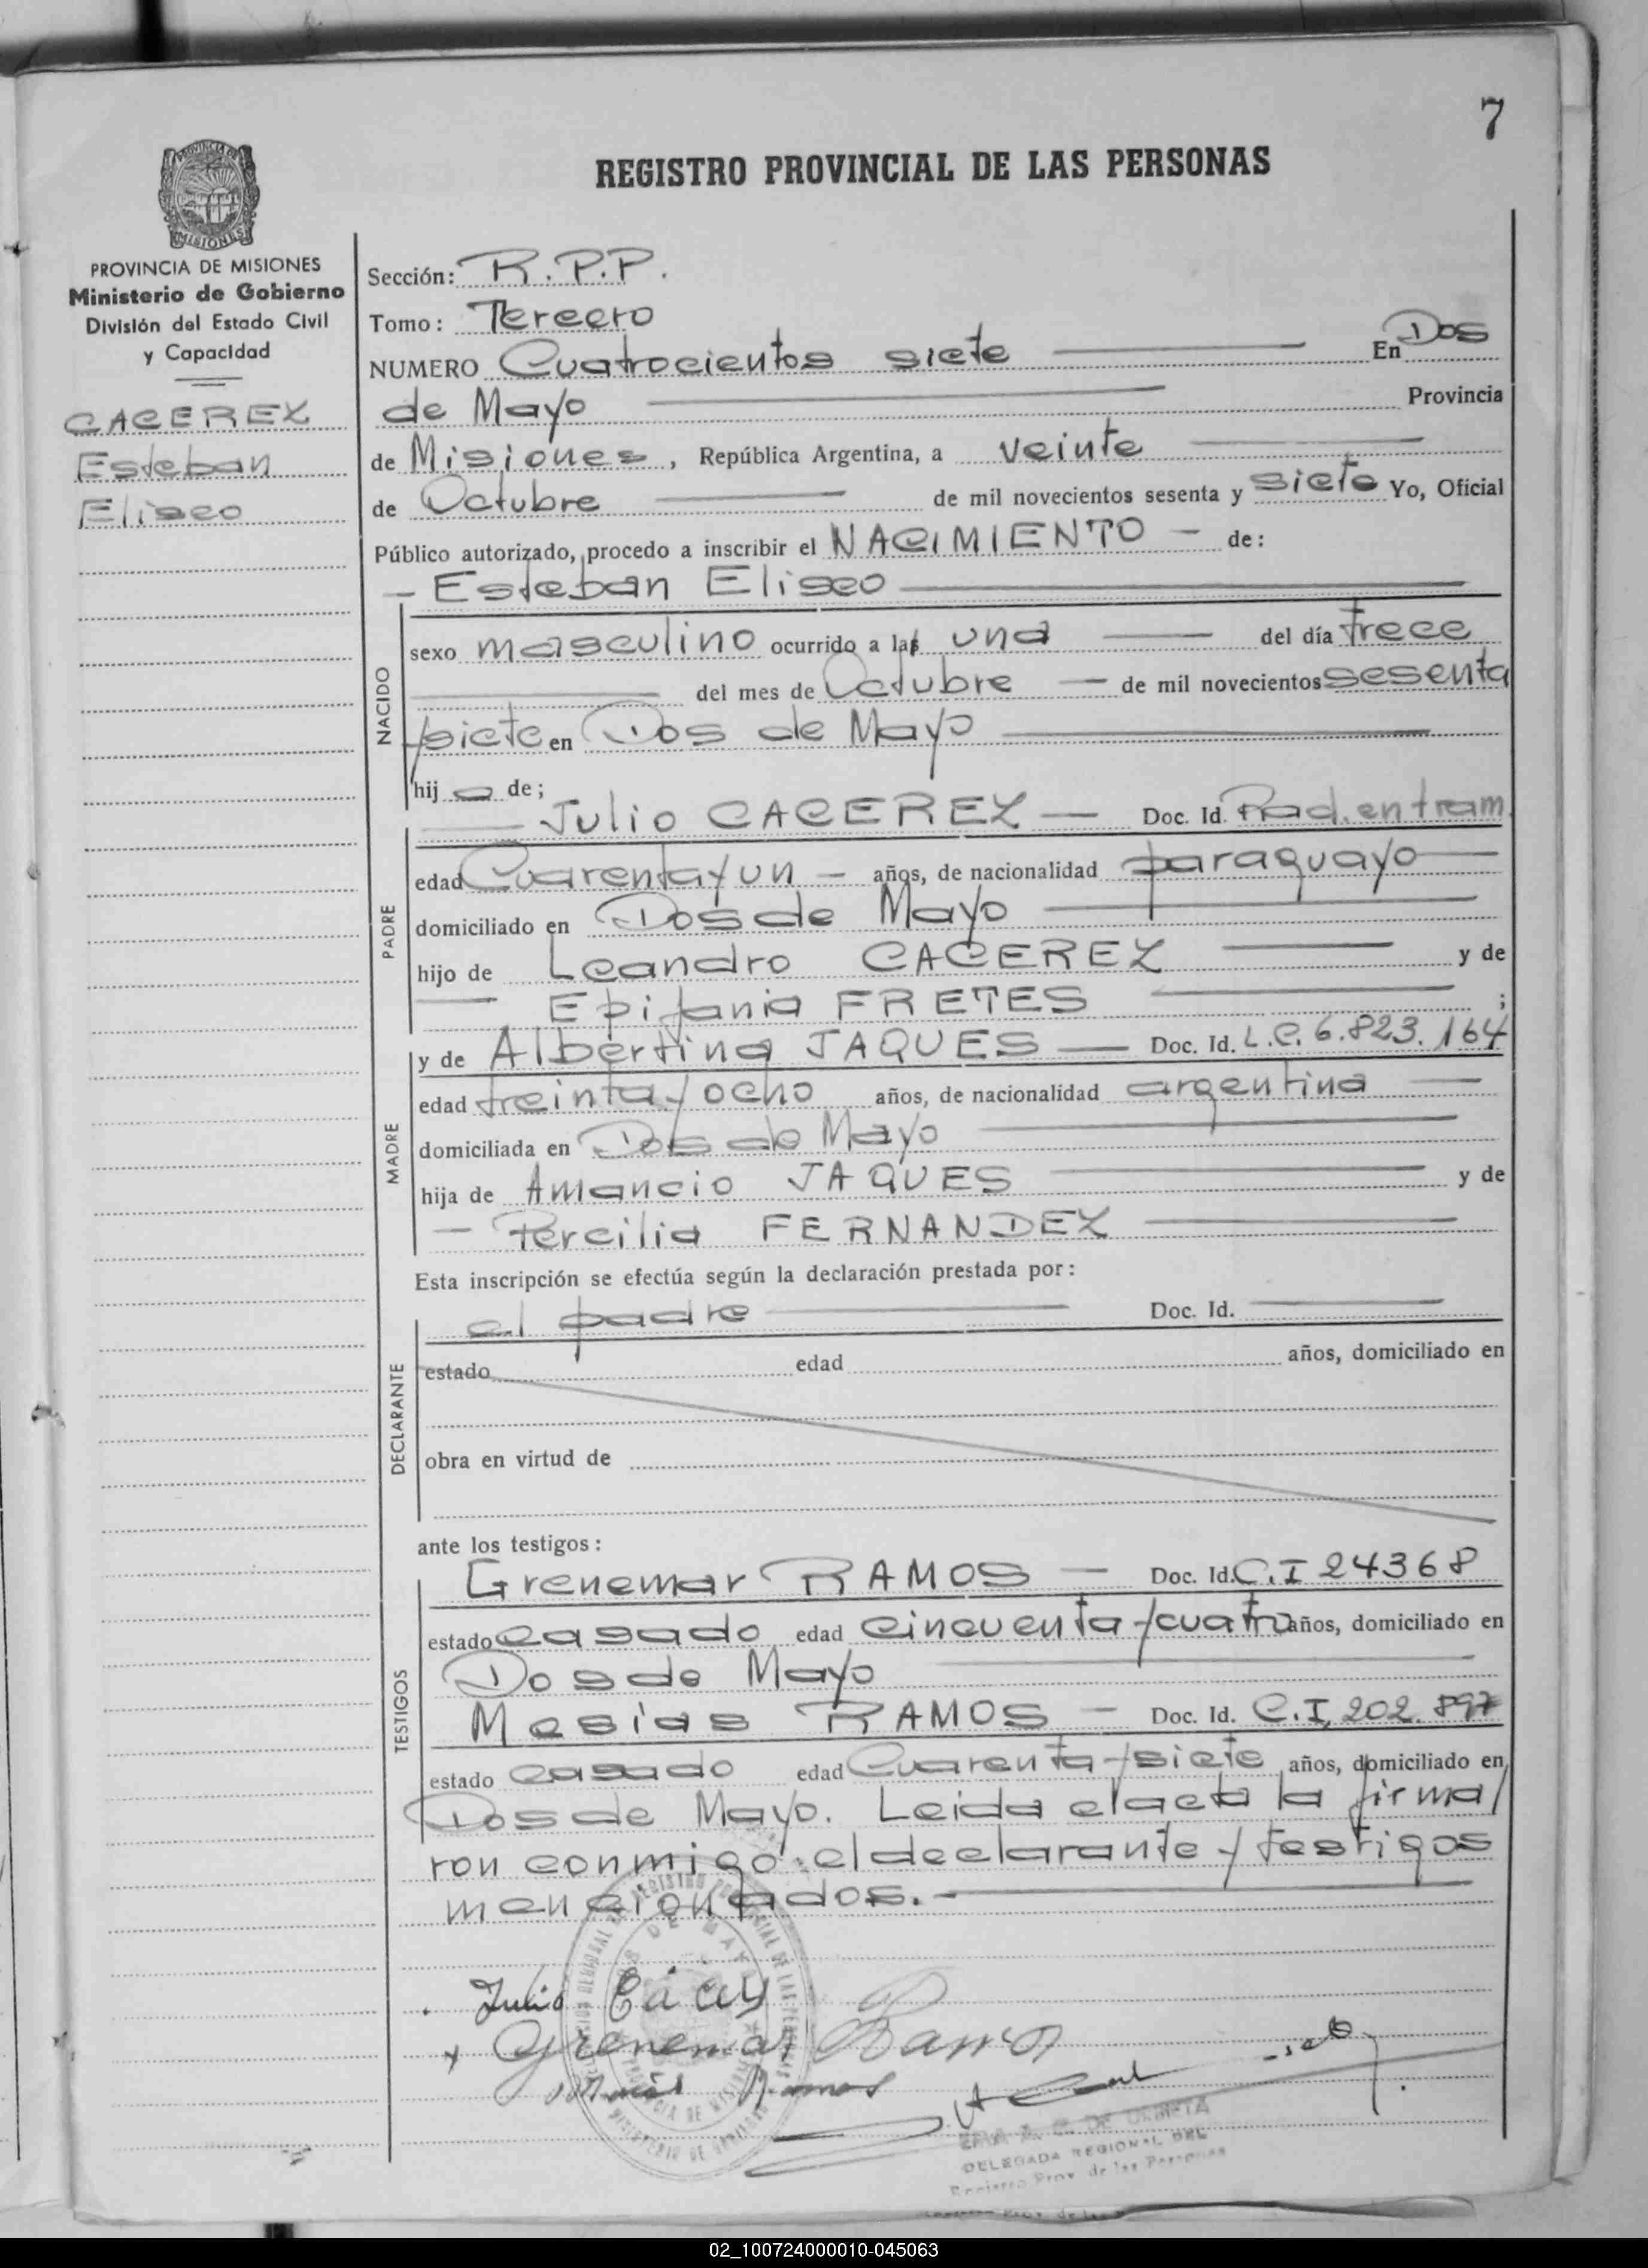 7
REGISTRO PROVINCIAL DE LAS PERSONAS
PROVINCIA DE
MISIONES
PROVINCIA DE MISIONES
Ministerio de Gobierno
División del Estado Civil
y Capacidad
CACEREZ
Esteban
Eliseo
Sección: R.P.P.
Tomo: Tercero
NUMERO Cuatrocientos siete En Dos
de Mayo Provincia
de Misiones, República Argentina, a veinte
de Octubre de mil novecientos sesenta y siete Yo, Oficial
Público autorizado, procedo a inscribir el NACIMIENTO - de:
- Esteban Eliseo
NACIDO
sexo masculino ocurrido a las una del día trece
del mes de Octubre - de mil novecientos sesenta
/siete en Dos de Mayo
hijo de;
Julio CACEREZ - Doc. Id. Rad. en tram.
PADRE
edad Cuarenta y un - años, de nacionalidad paraguayo
domiciliado en Dos de Mayo
hijo de Leandro CACEREZ y de
Epifania FRETES ;
y de Albertina JAQUES - Doc. Id. L.C. 6.823.164
MADRE
edad treinta y ocho años, de nacionalidad argentina
domiciliada en Dos de Mayo
hija de Amancio JAQUES y de
- Percilia FERNANDEZ
Esta inscripción se efectúa según la declaración prestada por:
el padre Doc. Id.
DECLARANTE
estado edad años, domiciliado en
obra en virtud de
ante los testigos:
Grenemar RAMOS - Doc. Id. C.I 24368
TESTIGOS
estado casado edad cincuenta y cuatro años, domiciliado en
Dos de Mayo
Mesias RAMOS - Doc. Id. C.I. 202.897
estado casado edad Cuarenta y siete años, domiciliado en
Dos de Mayo. Leida el acta la firma/
ron conmigo el declarante y testigos
mencionados.-
Julio
Grenemar Ramos
Ramos
DELEGADA REGIONAL DEL
Registro Prov. de las Personas
02_100724000010-045063